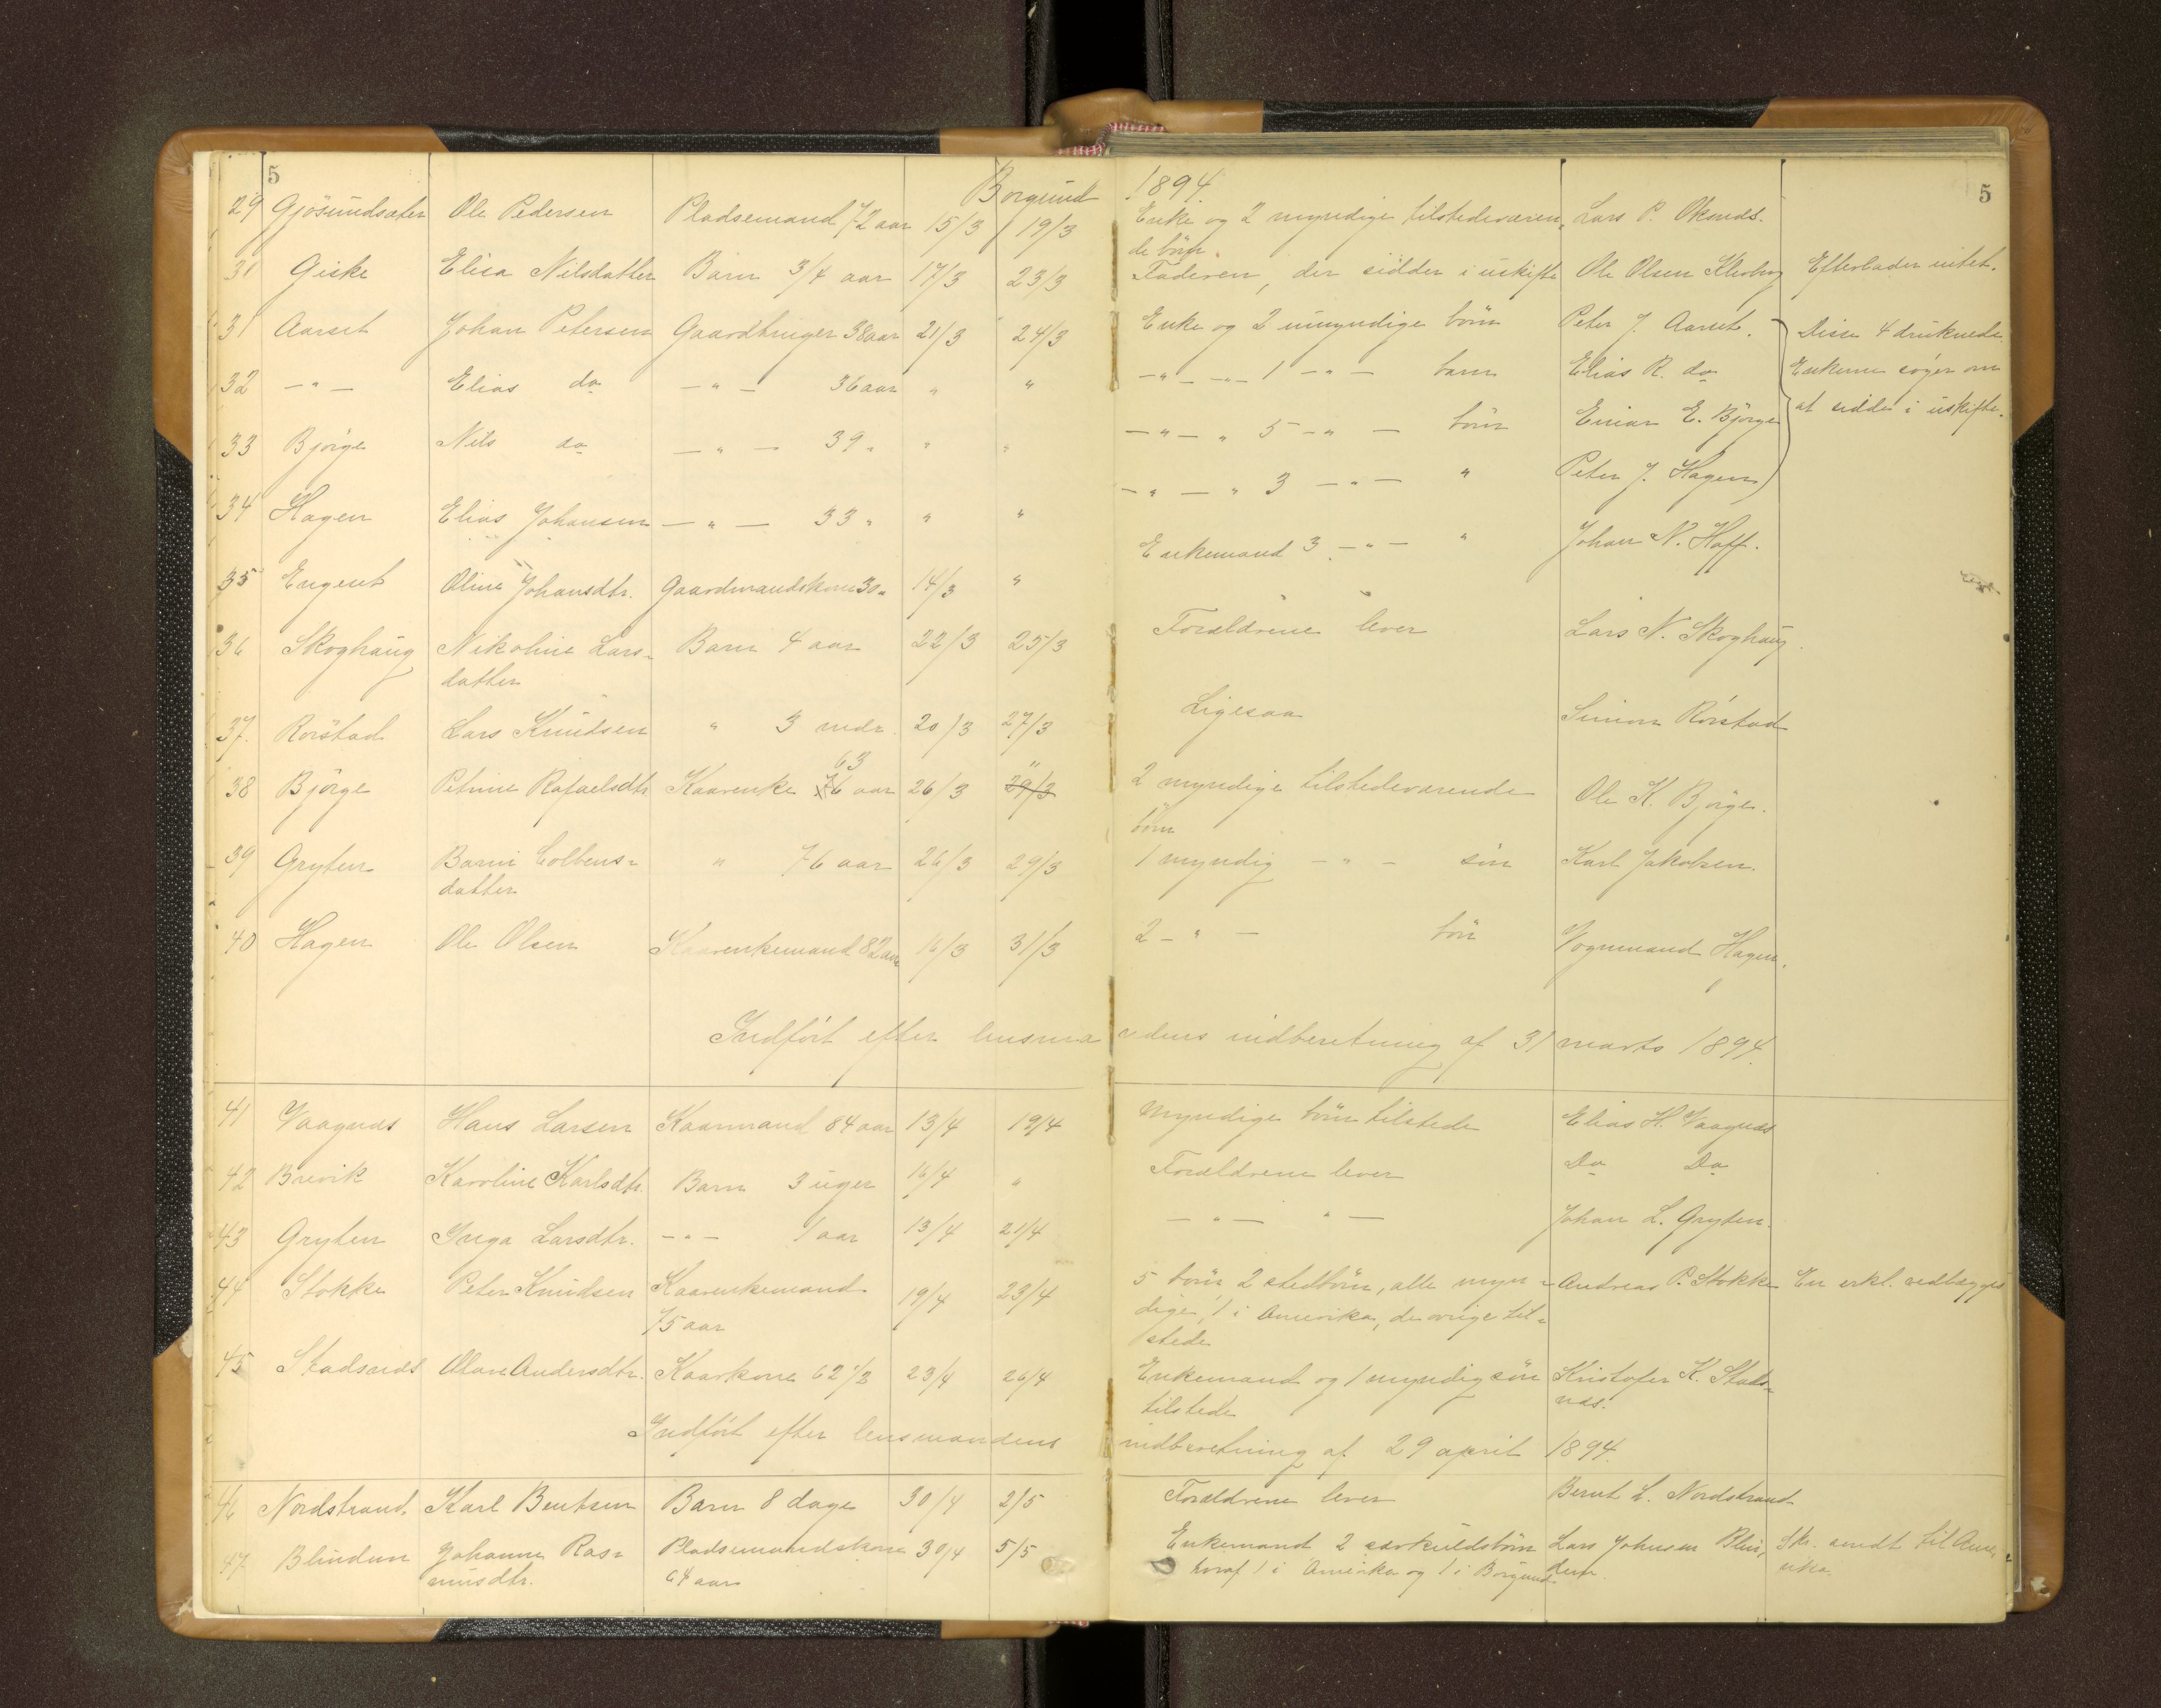 5
Borgund 1894.
5
29 Gjösundsæter Ole Pedersen Pladsemand 72 aar 15/3 19/3 Enke og 2 myndige tilstedeværen- Lars P. Oksnes.
de børn.
31 Giske Elisa Nilsdatter Barn 3/4 aar 17/3 23/3 Faderen, der sidder i uskifte Ole Olsen Efterlader intet.
31 Aarset Johan Petersen Gaardbruger 38 aar 21/3 24/3 Enke og 2 umyndige börn Peter J. Aarset. Disse 4 druknede
32 — " — Elias do — " — 36 aar " " — " — — " — 1 — " — barn Elias R. do Enkerne söger om
33 Björge Nils do — " — 39 " " " — " — " 5 — " — börn Einar E. Björge at sidde i uskifte.
34 Hagen Elias Johansen — " — 33 " " " — " — " 3 — " — " Peter J. Hagen
35 Engeset Oline Johansdtr. Gaardmandskone 30 " 14/3 " Enkemand 3 — " — " Johan N. Hoff.
36 Skoghaug Nikoline Lars- Barn 4 aar 22/3 25/3 Forældrene lever Lars N. Skoghaug.
datter
37. Rörstad Lars Knudsen " 3 mdr. 20/3 27/3 Ligesaa Simon Rörstad
63 "
38 Björge Petrine Rafaelsdtr. Kaarenke 76 aar 26/3 29/3 2 myndige tilstedeværende Ole K. Björge.
börn
39 Gryten Barni Colbens- " 76 aar 26/3 29/3 1 myndig — " — sön Karl Jakobsen.
datter
40 Hagen Ole Olsen Kaarenkemand 82 aar 16/3 31/3 2 — " — börn Vognmand Hagen.
Indfört efter lensmandens indberetning af 31 marts 1894.
41 Vaagnes Hans Larsen Kaarmand 84 aar 13/4 19/4 Myndige börn tilstede Elias H. Vaagnes
42 Brevik Karoline Karlsdtr. Barn 3 uger 16/4 " Forældrene lever Do Do
43 Gryten Inga Larsdtr. — " — 1 aar 13/4 21/4 — " — " — Johan L. Gryten.
44 Stokke Peter Knudsen Kaarenkemand 19/4 23/4 5 börn 2 stedbörn, alle myn- Andreas P. Stokke En erkl. vedlægges
75 aar dige, 1 i Amerika, de övrige til-
stede
45 Stadsnes Olave Andersdtr. Kaarkone 62 1/2 23/4 26/4 Enkemand og 1 myndig sön Kristofer K. Stads-
tilstede nes.
Indfört efter lensmandens indberetning af 29 april 1894.
46 Nordstrand. Karl Bentsen Barn 8 dage 30/4 2/5 Forældrene lever Bernt L. Nordstrand
47 Blindem Johanne Ras- Pladsemandskone 30/4 5/5 Enkemand 2 særkuldsbörn Lars Johnsen Blin- Skr. sendt til Ame-
musdtr. 64 aar hvoraf 1 i Amerika og 1 i Borgund dem. rika.